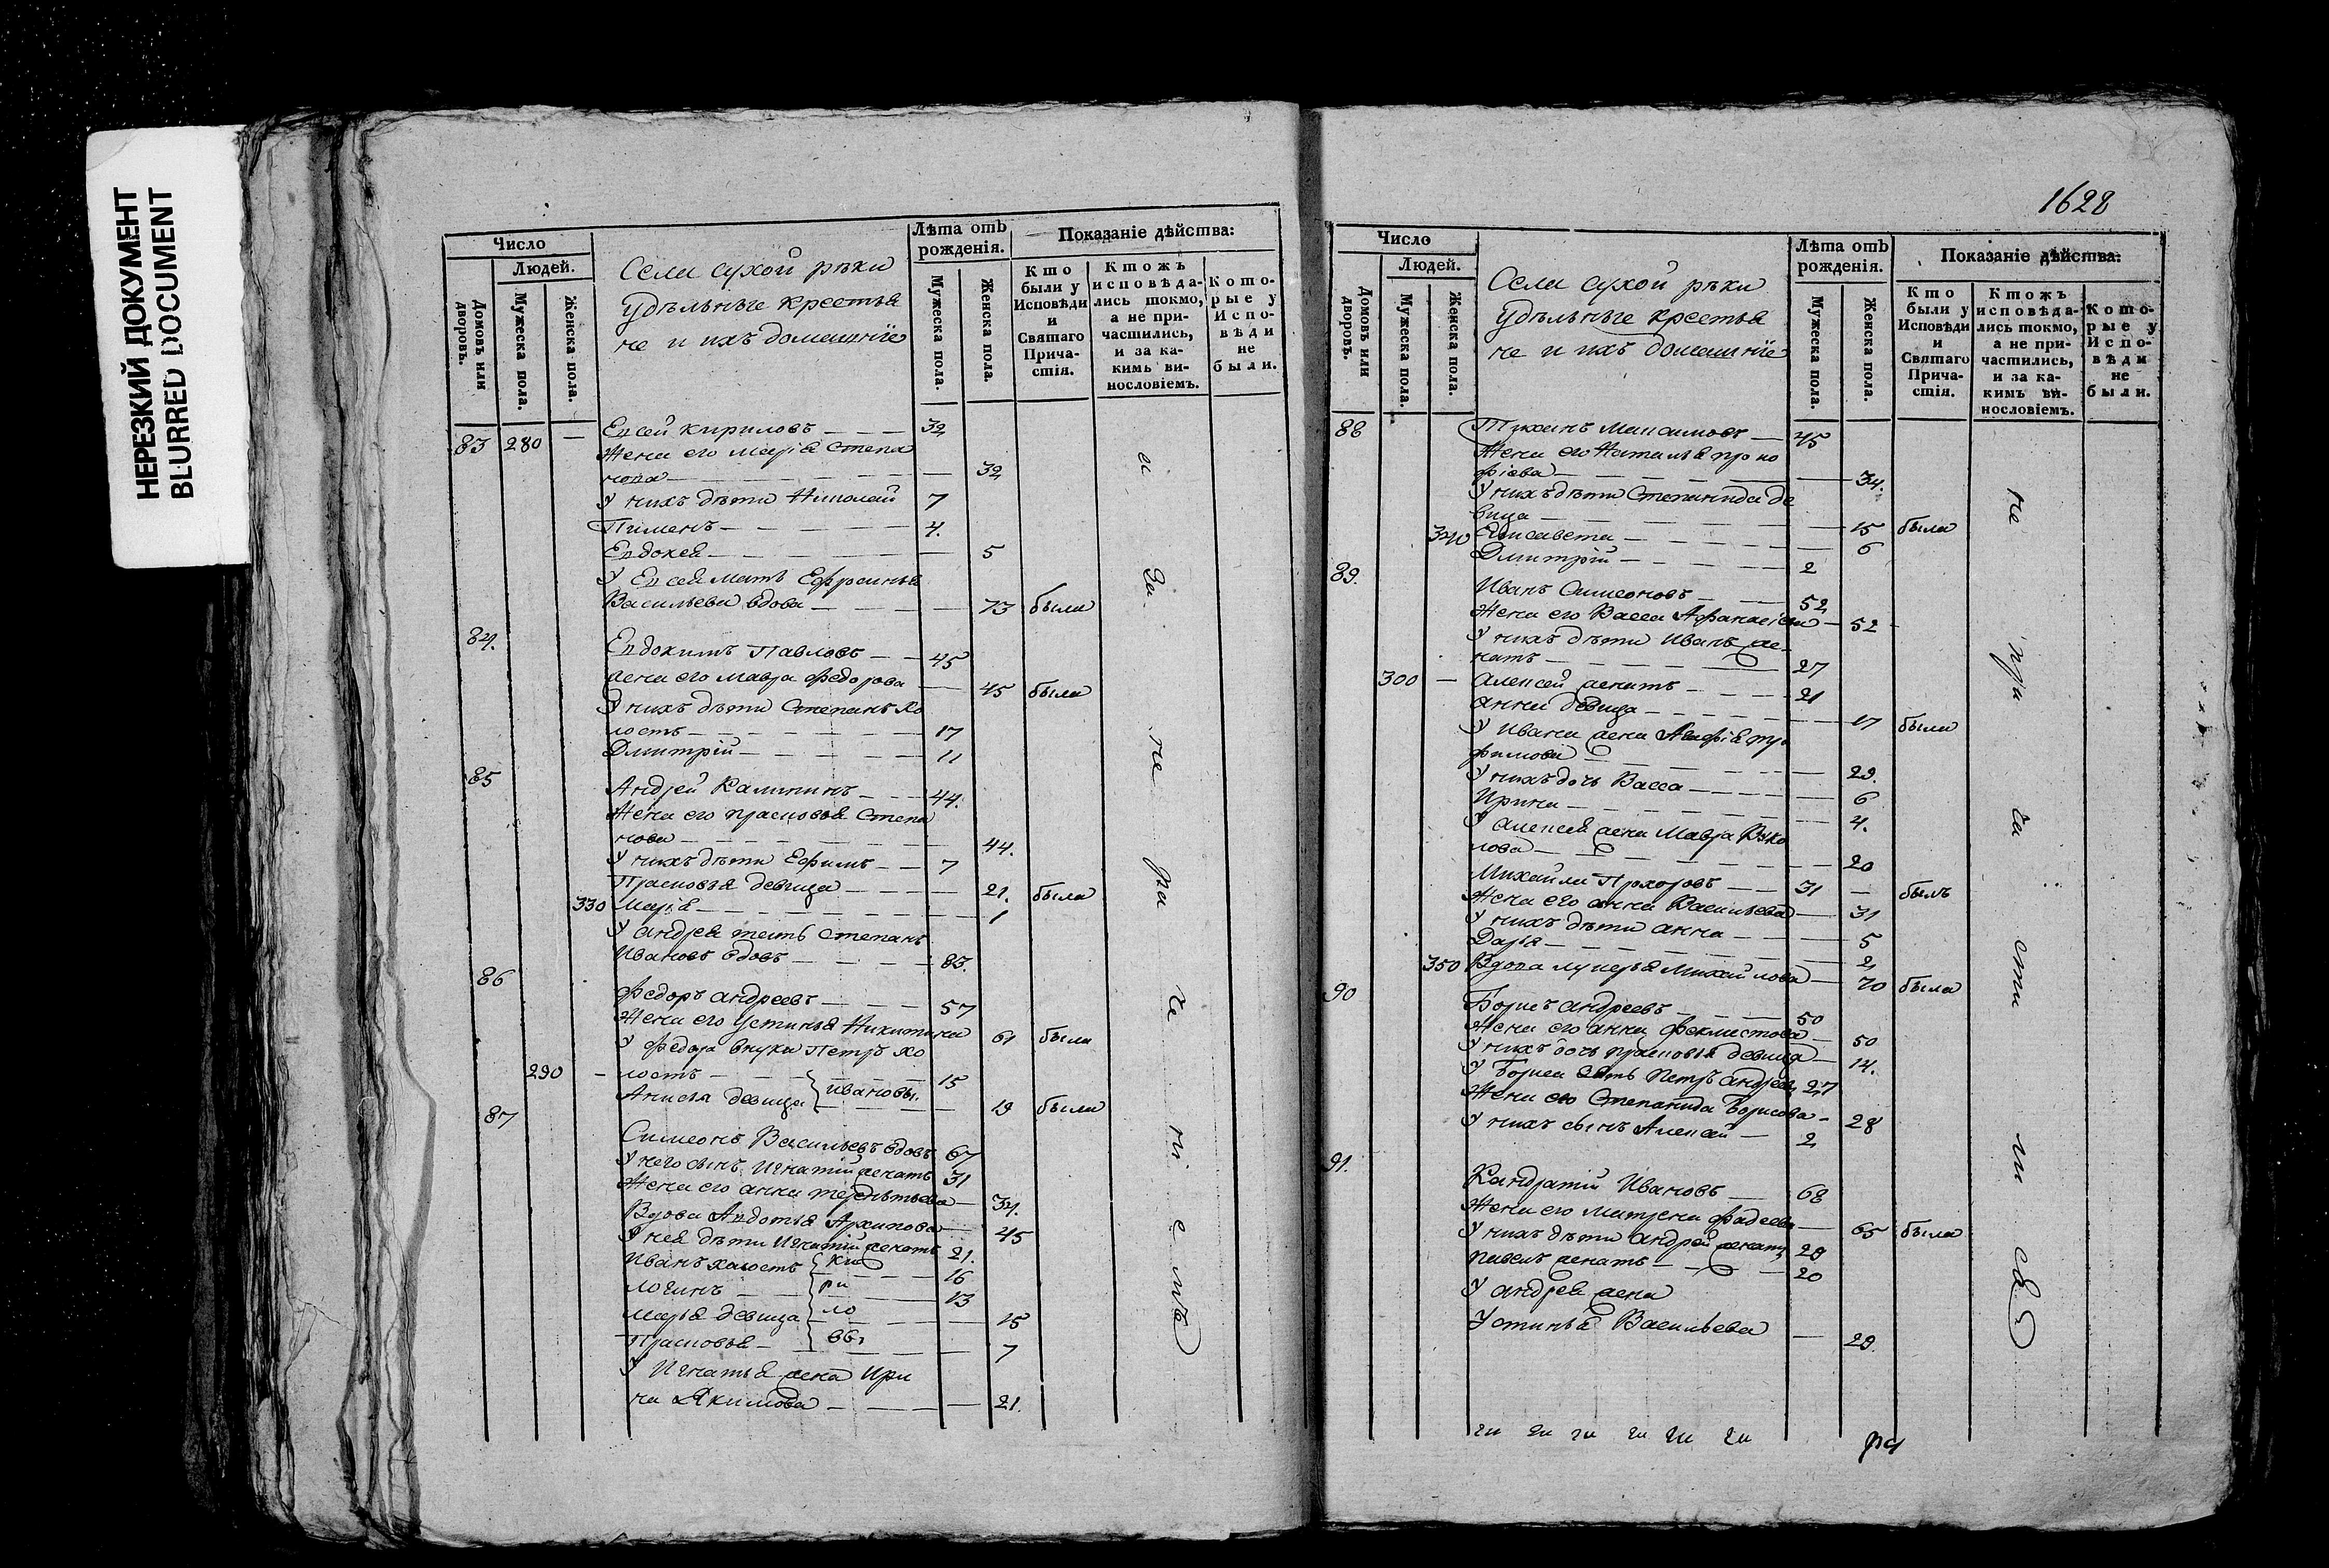 НЕРЕЗКИЙ ДОКУМЕНТ
BLURRED DOCUMENT
Число
Людей.
Домовъ или дворовъ.
Мужеска пола.
Женска пола.
Села сухой рѣки
удѣльные крестья
не и ихъ домашніе
Лѣта отъ рожденія.
Мужеска пола.
Женска пола.
Показаніе дѣйства:
Кто были у Исповѣди и Святаго Причастія.
Ктожъ исповѣдались токмо, а не причастились, и за какимъ винословіемъ.
Которые у Исповѣди не были.
83 280 — Евсей Кириловъ — 32
Жена его Марія Степа
нова — 32
У нихъ дѣти Николай 7
Пименъ — 4.
Евдокея — 5
У Евсея мать Ефросинья
Васильева вдова — 73 была
84. Евдокимъ Павловъ — 45
жена его Мавра Федорова — 45 была
У нихъ дѣти Степанъ хо
лостъ — 17
Дмитрій — 11
85 Андрей Калининъ — 44.
Жена его Прасковья Степа
нова — 44.
У нихъ дѣти Ефимъ — 7
Прасковья девица — 21. была
330 Марія — 1
У Андрея тесть Степанъ
Ивановъ вдовъ — 83.
86 Федоръ Андреевъ — 57
Жена его Устинья Никитина 61 была
У Федора внуки Петръ хо
290 — лостъ — 15
Анисья девица Ивановы. — 19 была
87 Симеонъ Васильевъ вдовъ 67
У него сынъ Игнатій женатъ 31
Жена его Анна Терентьева — 34.
Вдова Авдотья Архипова — 45
У нея дѣти Игнатій женатъ 21.
Иванъ холостъ Ки — 16
Логинъ — ри — 13
Марья девица ло — 15
Прасковья — вы — 7
У Игнатья жена Ири
на Якимова — 21.
за не ра че ні е мъ
1628
Число
Людей.
Домовъ или дворовъ.
Мужеска пола.
Женска пола.
Села сухой рѣки
удѣльные крестья
не и ихъ домашніе
Лѣта отъ рожденія.
Мужеска пола.
Женска пола.
Показаніе дѣйства:
Кто были у Исповѣди и Святаго Причастія.
Ктожъ исповѣдались токмо, а не причастились, и за какимъ винословіемъ.
Которые у Исповѣди не были.
88 Максимовъ — 45
Жена его Наталья Проко
фіева — 34.
У нихъ дѣти Степанида де
вица — 15 была
340 Елисавета — 6
Дмитрій — 2
89. Иванъ Симеоновъ — 52
Жена его Васса Афанасіева — 52
У нихъ дѣти Иванъ же
натъ — 27
300 — Алексей женатъ — 21
Анна девица — 17 была
У Ивана жена Агафія Тро
фимова — 29.
У нихъ дочь Васса — 6
Ирина — 4.
У Алексея жена Мавра Вуко
лова — 20
Михайла Прохоровъ — 31 — былъ
Жена его Анна Васильева — 31
У нихъ дѣти Анна — 5
Дарья — 2
350 Вдова Лукерья Михайлова — 70 была
90 Борисъ Андреевъ — 50
Жена его Анна Феклистова — 50
У нихъ дочь Прасковья девица — 14.
У Бориса зять Петръ Андреевъ 27
Жена его Степанида Борисова — 28
У нихъ сынъ Алексей — 2
91. Кандратій Ивановъ — 68
Жена его Матрена Фадеева — 65 была
У нихъ дѣти Андрей женатъ 29
Павелъ женатъ — 20
У Андрея жена
Устинья Васильева — 29.
не при ча сти ли ся